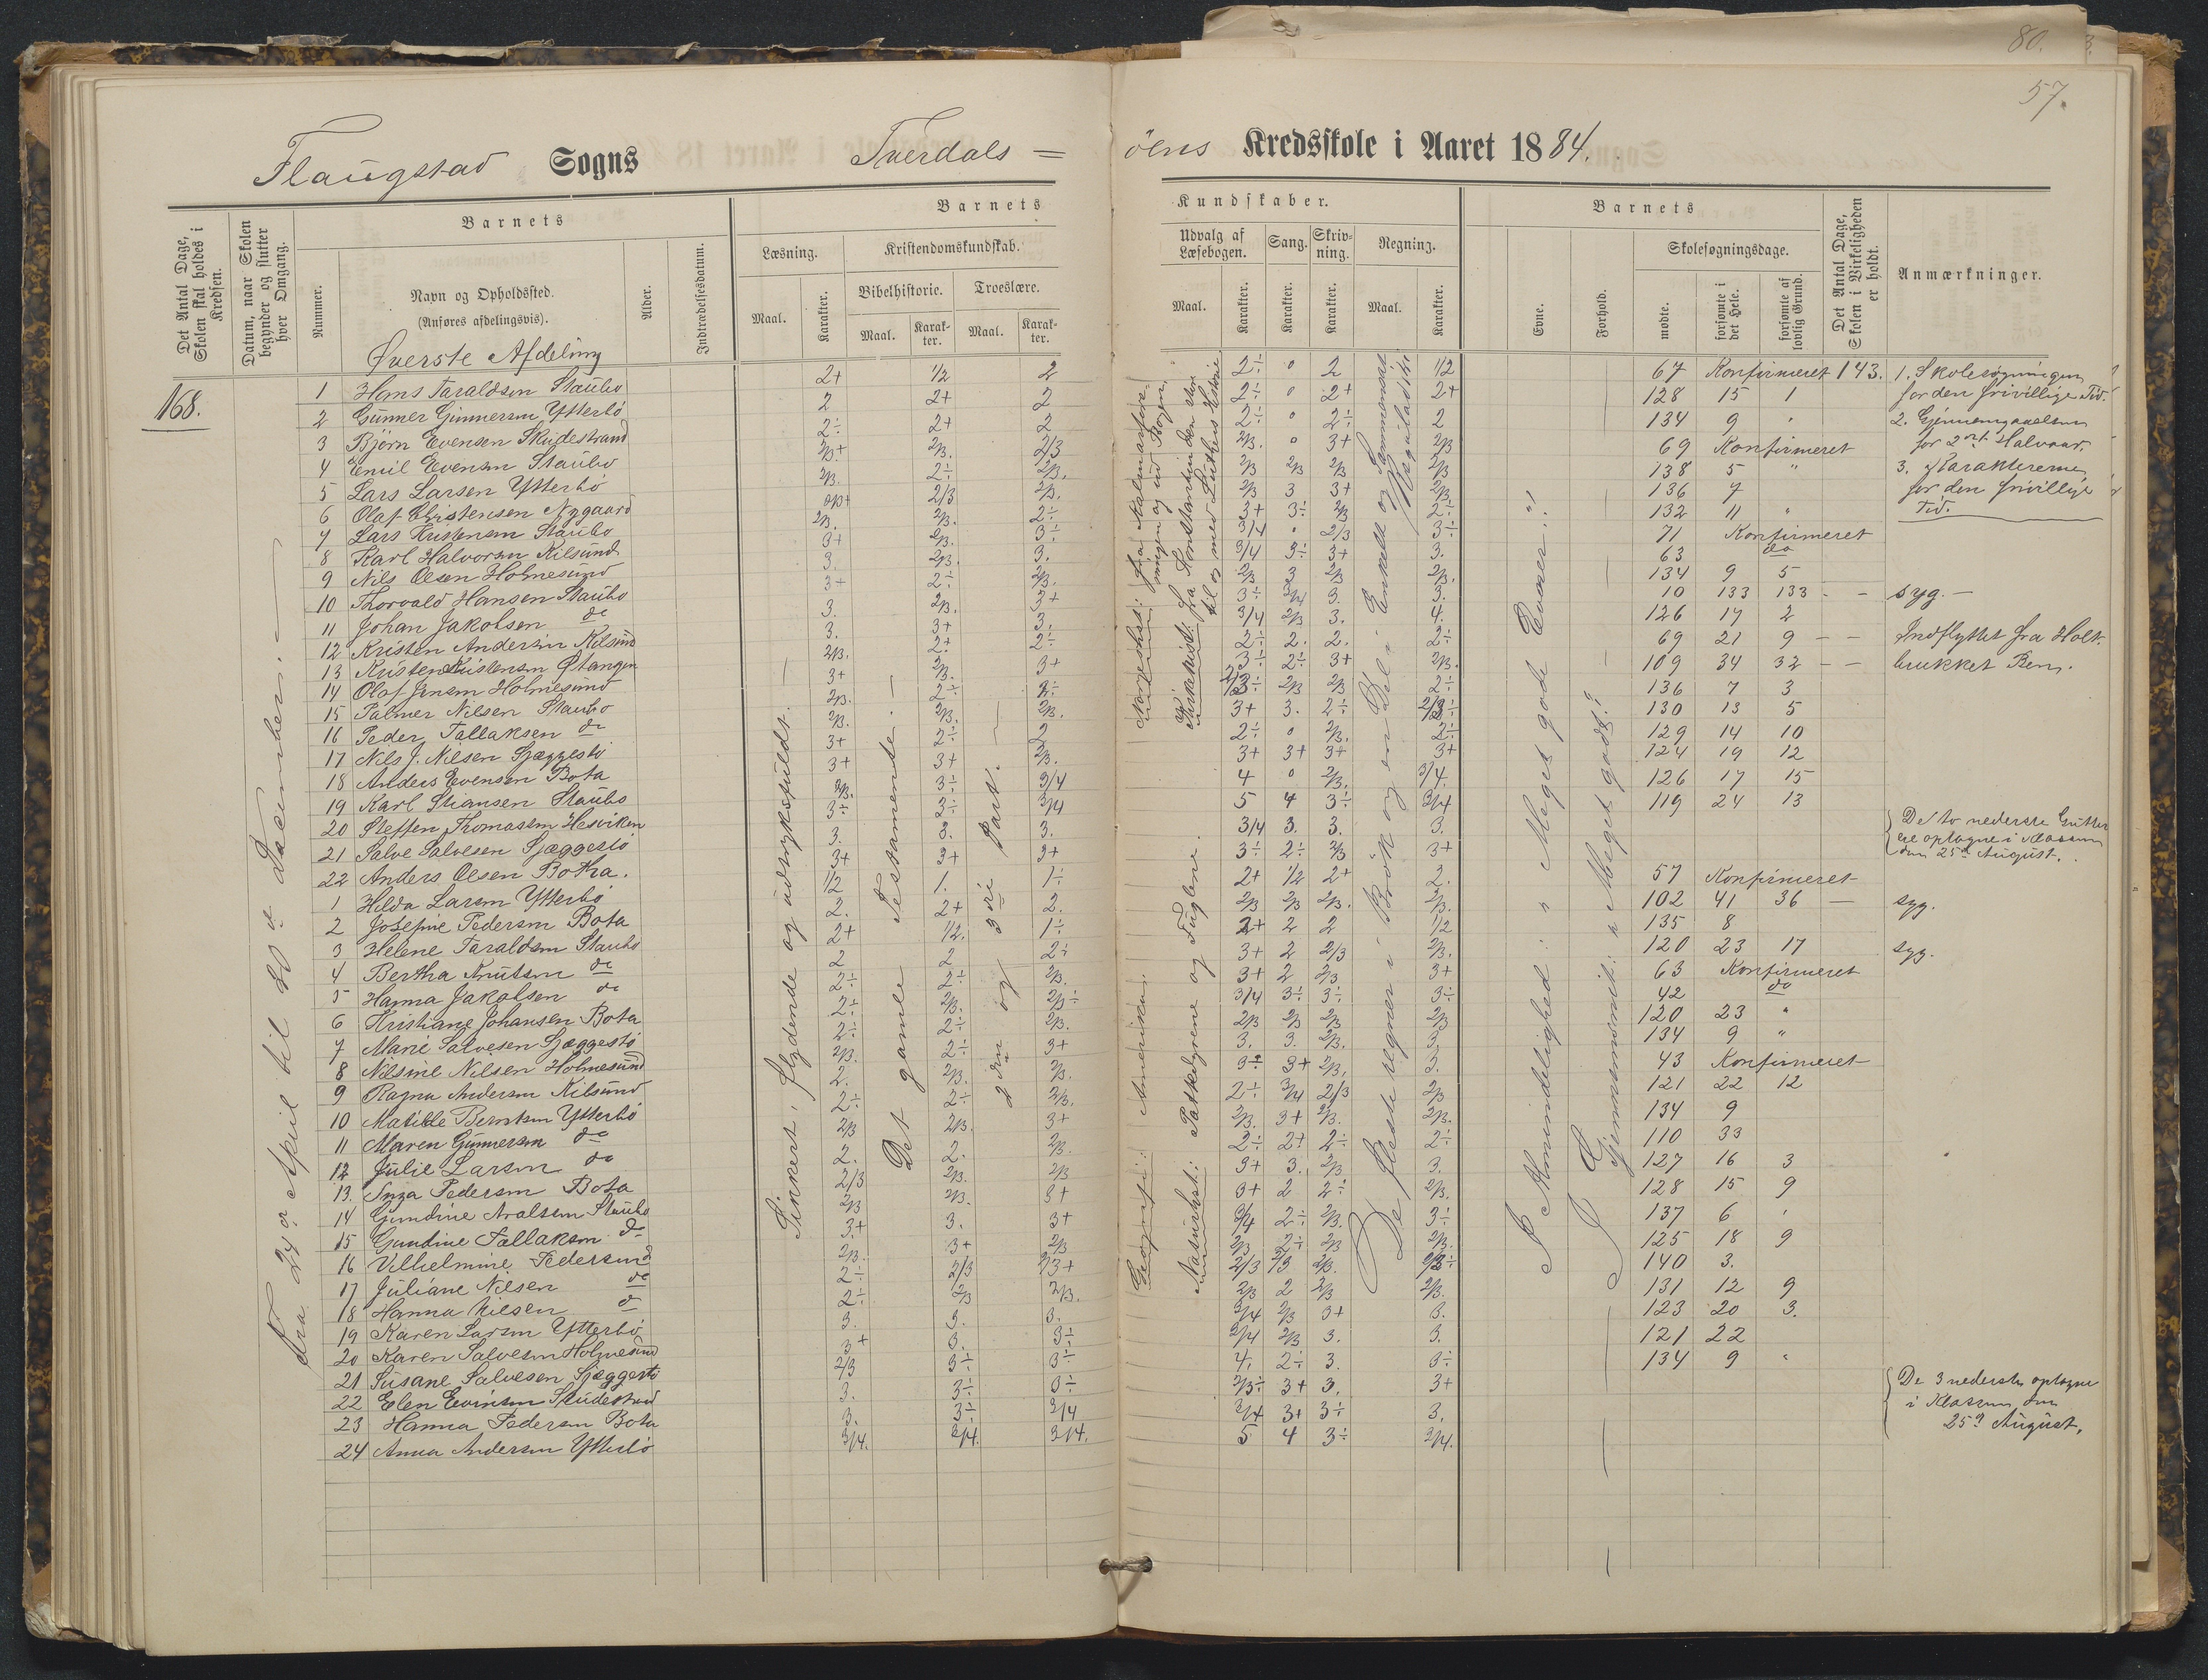 80.
57.
Flaugstad Sogns Tverdals = öens Kredsskole i Aaret 1884.
Det Antal Dage, Skolen skal holdes i Kredsen.
Datum, naar Skolen begynder og slutter hver Omgang.
Nummer.
Barnets
Navn og Opholdssted.
(Anføres afdelingsvis).
Alder.
Indtrædelsesdatum.
Barnets Kundskaber.
Læsning.
Maal.
Karakter.
Kristendomskundskab.
Bibelhistorie.
Maal.
Karakter.
Troeslære.
Maal.
Karakter.
Udvalg af Læsebogen.
Maal.
Karakter.
Sang.
Karakter.
Skrivning.
Karakter.
Regning.
Maal.
Karakter.
Barnets
Evne.
Forhold.
Skolesøgningsdage.
mødte.
forsømte i det Hele.
forsømte af lovlig Grund.
Det Antal Dage, Skolen i Virkeligheden er holdt.
Anmærkninger.
Øverste Afdeling
168.
Fra 24de April til 20de December.
1 Hans Taraldsen Staubo 2+ 1/2 2 2÷ 0 2 1/2 67 Konfirmeret 143.
2 Gunner Gunnersen Ytterbö 2 2+ 2 2÷ 0 2+ 2+ 128 15 1
3 Björn Evensen Skudestrand 2÷ 2+ 2 2÷ 0 2÷ 2 134 9 "
4 Emil Evensen Staubo 2/3+ 2/3. 2/3 2/3. 0 3+ 2/3 69 Konfirmeret
5 Lars Larsen Ytterbö 2/3. 2÷ 2/3. 2/3 2/3 2/3 2/3 138 5 "
6 Olaf Christensen Nygaard 2/3 2/3. 2/3 3 3+ 2/3. 136 7
7 Lars Kristensen Staubo 2/3. 2/3. 2÷ 3+ 3÷ 2/3 2÷ 132 11 "
8 Karl Halvorsen Kilsund 3+ 2/3. 3÷ 3/4 " 2/3 3÷ 71 Konfirmeret
9 Nils Olsen Holmesund 3. 2/3. 3. 3/4 3÷ 3+ 3. 63 do
10 Thorvald Hansen Staubo 3+ 2÷ 2/3. 2/3 3 2/3 2/3. 134 9 5
11 Johan Jakobsen do 3. 2/3. 3+ 3÷ 3/4 3. 3. 10 133 133 - - syg. -
12 Kristen Andersen Kilsund 3. 3+ 3. 3/4 2/3 3. 4. 126 17 2
13 Kristen Kristensen Østangen 2/3. 2+ 2÷ 2÷ 2. 2. 2÷ 69 21 9 - - Indflyttet fra Holt.
14 Olaf Jensen Holmesund 3+ 2/3. 3+ 3÷ 2÷ 3+ 2/3. 109 34 32 - - brukket Ben.
15 Palmer Nilsen Staubo 2/3. 2÷ 2/3 2/3 2÷ 136 7 3
16 Peder Tallaksen do 2/3. 2/3. 2/3. 3+ 3. 2÷ 130 13 5
17 Nils J. Nilsen Sjæggestö 3+ 2÷ 2 2÷ 0 2/3. 2÷ 129 14 10
18 Anders Evensen Bota 3+ 3+ 2/3. 3+ 3+ 3+ 3+ 124 19 12
19 Karl Stiansen Staubo 2/3. 3÷ 3/4 4 0 2/3. 3/4. 126 17 15
20 Steffen Thomassen Hesviken 3÷ 3÷ 3/4 5 4 3÷ 3/4 119 24 13
21 Salve Salvesen Sjæggestö 3. 3. 3. 3/4 3. 3. 3.
22 Anders Olsen Botha. 3+ 3+ 3+ 3÷ 2÷ 2/3 3+
1 Hilda Larsen Ytterbö 1/2 1. 1÷ 2+ 1/2 2+ 2. 57 Konfirmeret
2 Josefine Pedersen Bota 2. 2+ 2. 2/3 2/3 2/3. 2/3. 102 41 36 - syg.
3 Helene Taraldsen Staubo 2+ 1/2. 1÷ 2+ 2 2 1/2 135 8
4 Bertha Knutsen do 2 2 2÷ 3+ 2 2/3 2/3. 120 23 17 syg.
5 Hanna Jakobsen do 2÷ 2÷ 2/3. 3+ 2 2/3 3+ 63 Konfirmeret
6 Kristiane Johansen Bota 2÷ 2/3. 2/3÷ 3/4 3÷ 3÷ 3÷ 42 do
7 Marie Salvesen Sjæggestö 2÷ 2÷ 2/3. 2/3 2/3 2/3 2/3 120 23 "
8 Nilsine Nilsen Holmesund 2/3. 2÷ 3+ 3. 3. 2/3. 3 134 9 "
9 Ragna Andersen Kilsund 2. 2/3. 2/3. 3+ 2/3. 3. 43 Konfirmeret
10 Matilde Berntsen Ytterbö 2÷ 2÷ 2/3. 2÷ 3/4 2/3 2/3 121 22 12
11 Maren Gunnersen do 2/3 2/3. 3+ 2/3. 3+ 2/3. 2/3. 134 9
12 Julie Larsen do 2. 2. 2/3. 2÷ 2+ 2÷ 2÷ 110 33
13. Inga Pedersen Bota 2/3 2/3. 2/3 3+ 3. 2/3 3. 127 16 3
14 Gundine Aralsen Staubo 2/3 2/3. 3+ 3+ 2 2÷ 2/3. 128 15 9
15 Gundine Tallaksen do 3+ 3. 3+ 3/4 2÷ 2/3. 3÷ 137 6 '
16 Vilhelmine Pedersen do 2/3. 3+ 2/3 2/3 2÷ 2/3 2/3. 125 18 9
17 Juliane Nilsen do 2÷ 2/3 2/3+ 2/3 2/3 2/3. 140 3.
18 Hanna Nilsen do 2÷ 2/3 2/3. 2/3 2 2/3 2/3. 131 12 9
19 Karen Larsen Ytterbö 3. 3. 3. 3/4 2/3 3+ 3. 123 20 3.
20 Karen Salvesen Holmesund 3+ 3. 3÷ 3/4 2/3 3. 3. 121 22
21 Susane Salvesen Sjæggestö 2/3 3÷ 3÷ 4. 2÷ 3. 3÷ 134 9 "
22 Elen Evensen Skudestrand 3. 3÷ 3÷ 2/3÷ 3+ 3. 3+
23 Hanna Pedersen Bota 3. 3÷ 3/4 3/4 3+ 3÷ 3.
24 Anna Andersen Ytterbö 3/4. 3/4. 3/4. 5 4 3÷ 3/4.
Sikkert, flydende og udtryksfuldt.
Det gamle Testamente.
2den og 3die Part.
Norgeshist: fra Kalmarforeningen og ud Bogen.
Kirkehist: fra Konstantin den store til og med Luthers Historie
Geografi: Amerika.
Naturhist: Pattedyrene og Fuglene.
De fleste regner i Brök og en Del i Enkelt og Sammensat Reguladetri.
I Almindelighed: " Meget gode Evner!"
I Gjennemsnit: " Meget godt!"
1. Skolesøgningen for den frivillige Tid.
2. Gjennemgaaelsen for 2det Halvaar.
3. Karaktererne for den frivillige Tid.
De to nederste Gutter ere optagne i Klassen den 25de August.
De 3 nederste optagne i Klassen den 25de August.